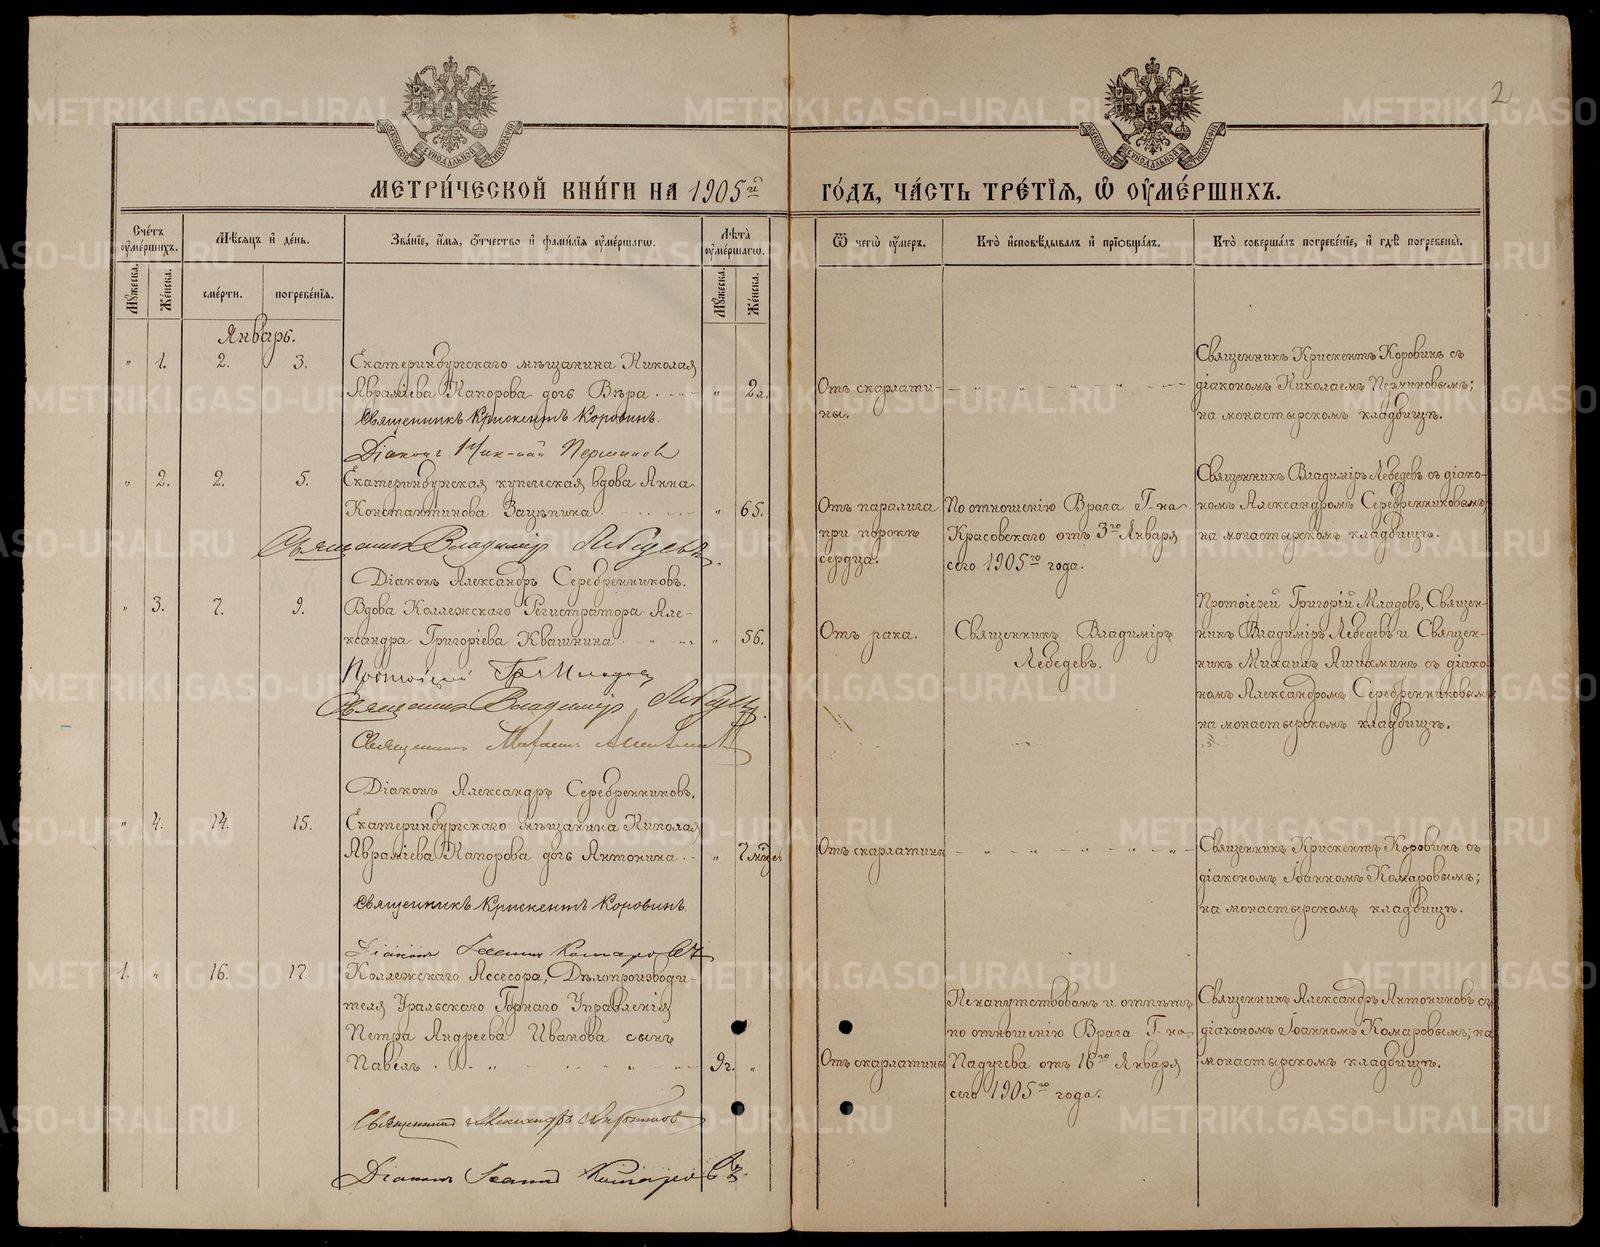 2
МОСКОВСКОЙ СѴНОДАЛЬНОЙ ТИПОГРАФІИ
МОСКОВСКОЙ СѴНОДАЛЬНОЙ ТИПОГРАФІИ
МЕТРИ́ЧЕСКОЙ КНИ́ГИ НА 1905й
ГО́ДЪ, ЧА́СТЬ ТРЕ́ТІѦ, Ѡ҆ ОУ҆МЕ́РШИХЪ.
Сче́тъ оу҆ме́ршихъ.
Мѣ́сяцъ и҆ де́нь.
Зва́ніе, и҆́мя, ѻ҆́тчество и҆ фами́лія оу҆ме́ршагѡ.
Лѣ́та оу҆ме́ршагѡ.
Ѿ чегѡ̀ оу҆́меръ.
Кто̀ и҆сповѣ́дывалъ и҆ прїѡбща́лъ.
Кто̀ соверша́лъ погребе́ніе, и҆ гдѣ̀ погребены̀.
Мꙋ́жеска.
Же́нска.
сме́рти.
погребе́нія.
Мꙋ́жеска.
Же́нска.
Январь.
" 1. 2. 3. Екатеринбургскаго мѣщанина Николая
Авраміева Напорова дочь Вѣра " 2 л.
Священникъ Крискентъ Коровинъ.
Діаконъ Ник-лай Перминовъ
Отъ скарлати-
ны.
Священникъ Крискентъ Коровинъ съ
діакономъ Николаемъ Перминовымъ;
на монастырскомъ кладбищѣ.
" 2. 2. 5. Екатеринбургская купеческая вдова Анна
Константинова Зацѣпина " 65.
Священникъ Владиміръ Лебедевъ.
Діаконъ Александръ Серебренниковъ.
Отъ паралича
при порокѣ
сердца.
По отношенію Врача Г-на
Красовскаго отъ 3го Января
сего 1905го года.
Священникъ Владиміръ Лебедевъ съ діако-
номъ Александромъ Серебренниковымъ;
на монастырскомъ кладбищѣ.
" 3. 7. 9. Вдова Коллежскаго Регистратора Але-
ксандра Григоріева Квашнина " 56.
Протоіерей Гр Младовъ
Священникъ Владиміръ Лебедевъ.
Священникъ Михаилъ Ашихминъ
Діаконъ Александръ Серебренниковъ.
Отъ рака.
Священникъ Владиміръ
Лебедевъ.
Протоіерей Григорій Младовъ, Священ-
никъ Владиміръ Лебедевъ и Священ-
никъ Михаилъ Ашихминъ съ діако-
номъ Александромъ Серебренниковымъ;
на монастырскомъ кладбищѣ.
" 4. 14. 15. Екатеринбургскаго мѣщанина Николая
Авраміева Напорова дочь Антонина " 7 мѣс.
Священникъ Крискентъ Коровинъ.
Діаконъ Іоаннъ Комаровъ
Отъ скарлатины
Священникъ Крискентъ Коровинъ съ
діакономъ Іоанномъ Комаровымъ;
на монастырскомъ кладбищѣ.
1. " 16. 17. Коллежскаго Ассесора, Дѣлопроизводи-
теля Уральскаго Горнаго Управленія
Петра Андреева Иванова сынъ
Павелъ 9 г. "
Священникъ Александръ Антониновъ
Діаконъ Іоаннъ Комаровъ.
Отъ скарлатины
Не напутствованъ и отпѣтъ
по отношенію Врача Г-на
Падучева отъ 16го Января
сего 1905го года.
Священникъ Александръ Антониновъ съ
діакономъ Іоанномъ Комаровымъ; на
монастырскомъ кладбищѣ.
METRIKI.GASO-URAL.RU